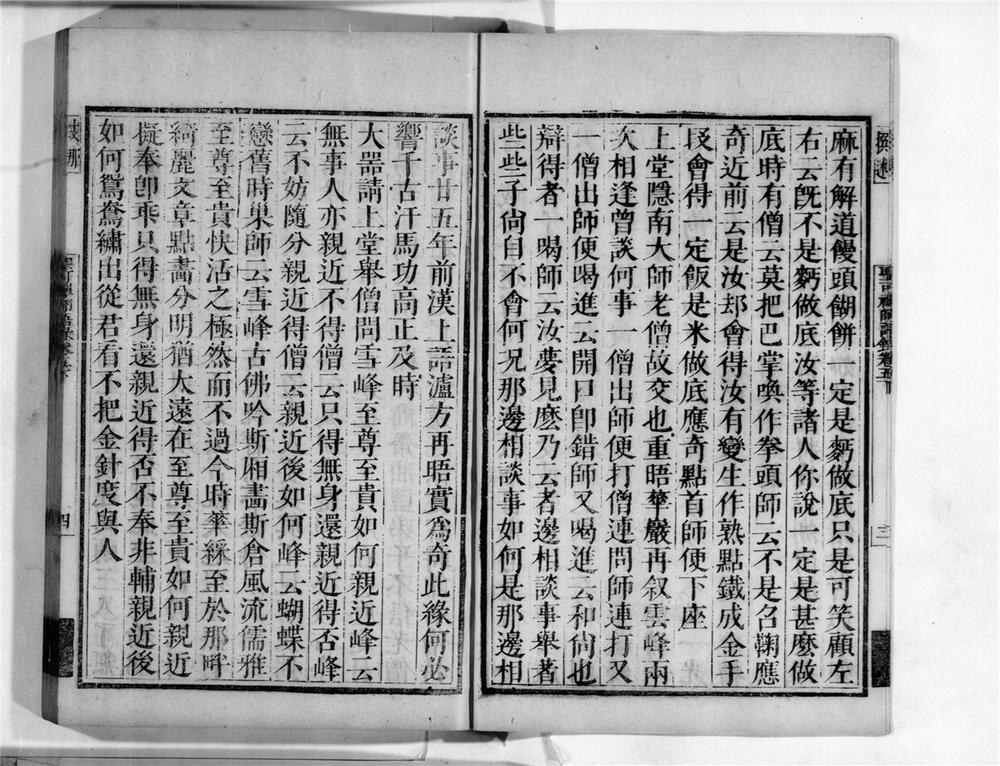 麻有解道饅頭餬餅一定是麪做底只是可笑顧左
右云旣不是麪做底汝等諸人你說一定是甚麼做
底時有僧云莫把巴掌喚作拳頭師云不是名鞠應
奇近前云是汝却會得汝有變生作熟點鐵成金手
叚會得一定飯是米做底應奇點首師便下座
上堂隱南大師老僧故交也重晤華嚴再叙雲峰兩
次相逢曾談何事一僧出師便打僧連問師連打又
一僧出師便喝進云開口卽錯師又喝進云和尙也
辯得者一喝師云汝夢見麽乃云者邊相談事舉著
些些子尙自不會何况那邊相談事如何是那邊相
三
談事廿五年前漢上話瀘方再晤實爲奇此緣何必
響千古汗馬功高正及時
大器請上堂舉僧問雪峰至尊至貴如何親近峰云
無事人亦親近不得僧云只得無身還親近得否峰
云不妨隨分親近得僧云親近後如何峰云蝴蝶不
戀舊時巢師云雪峰古佛吟斯廂畵斯倉風流儒雅
至尊至貴快活之極然而不過今時華綵至於那畔
綺麗文章點畵分明猶大遠在至尊至貴如何親近
擬奉卽乖只得無身還親近得否不奉非輔親近後
如何鴛鴦繡出從君看不把金針度與人
四